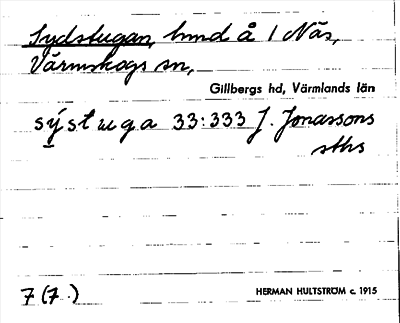 Sydstugan, hmd å 1 Näs,
Värmskogs sn,
Gillbergs hd, Värmlands län
sýstuga 33:333 J. Jonassons
sths
7 (7.)
HERMAN HULTSTRÖM c. 1915